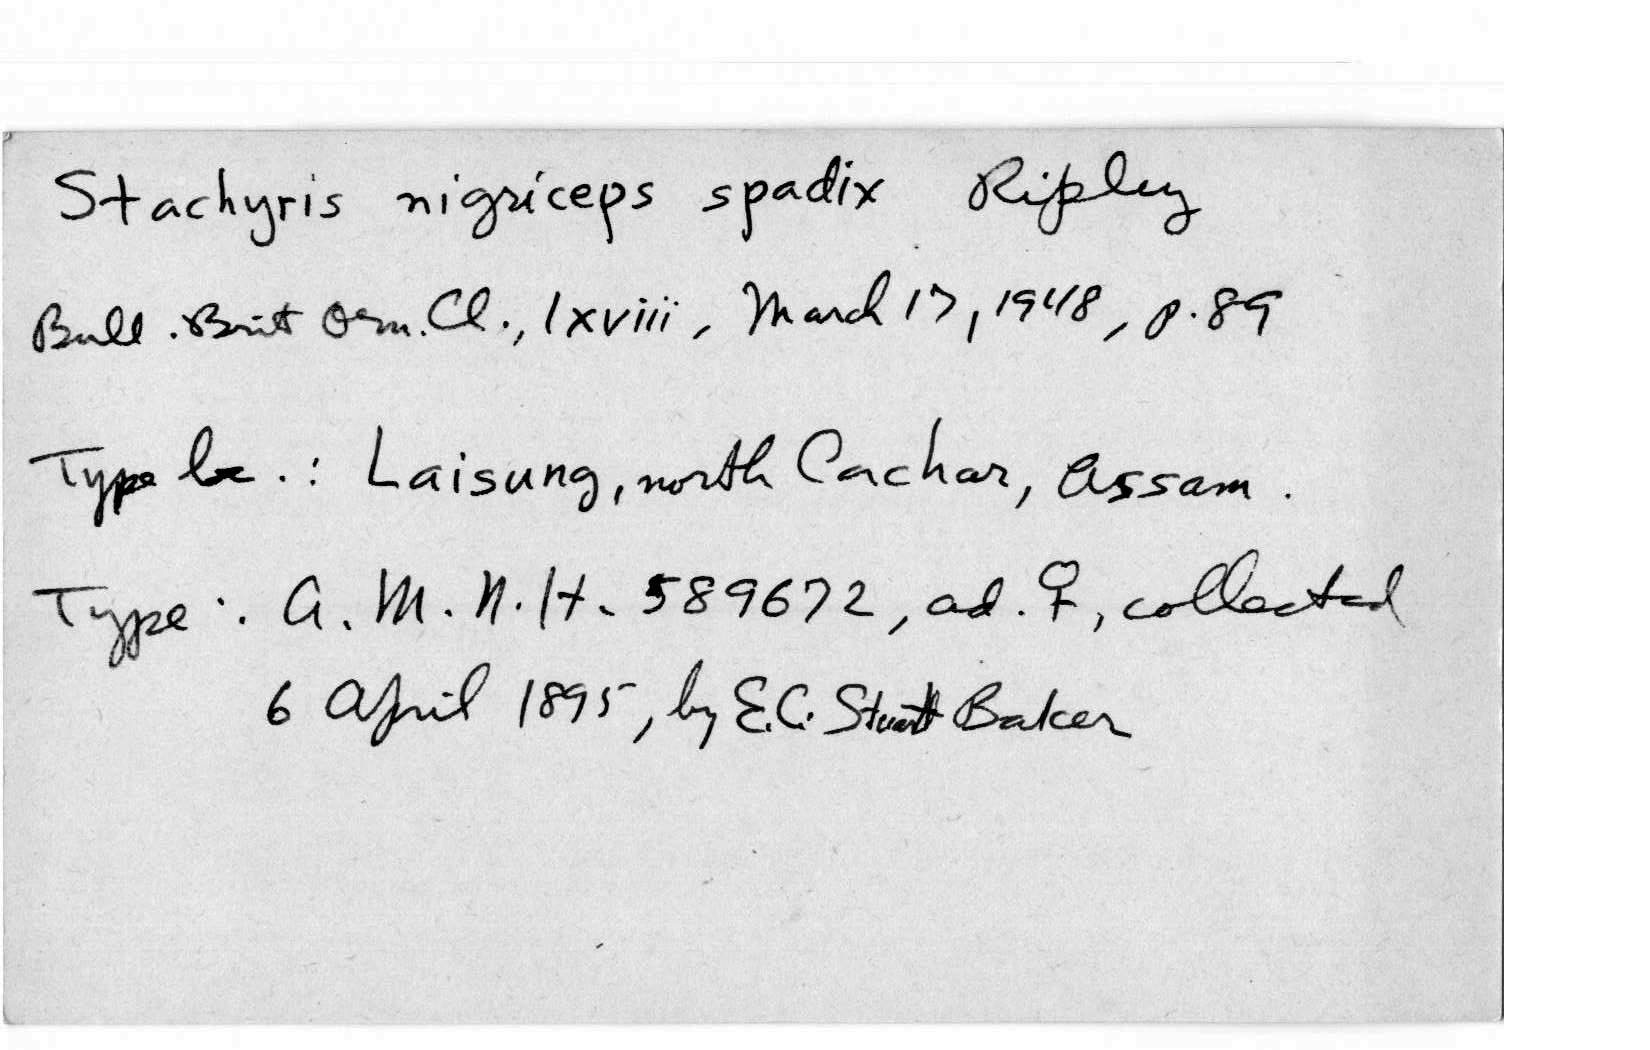 Stachyris nigriceps spadix Ripley
Bull. Brit Orn. Cl., lxviii, March 17, 1948, p. 89
Type loc.: Laisung, north Cachar, Assam.
Type: A.M.N.H. 589672, ad. ♀, collected
6 April 1895, by E.C. Stuart Baker